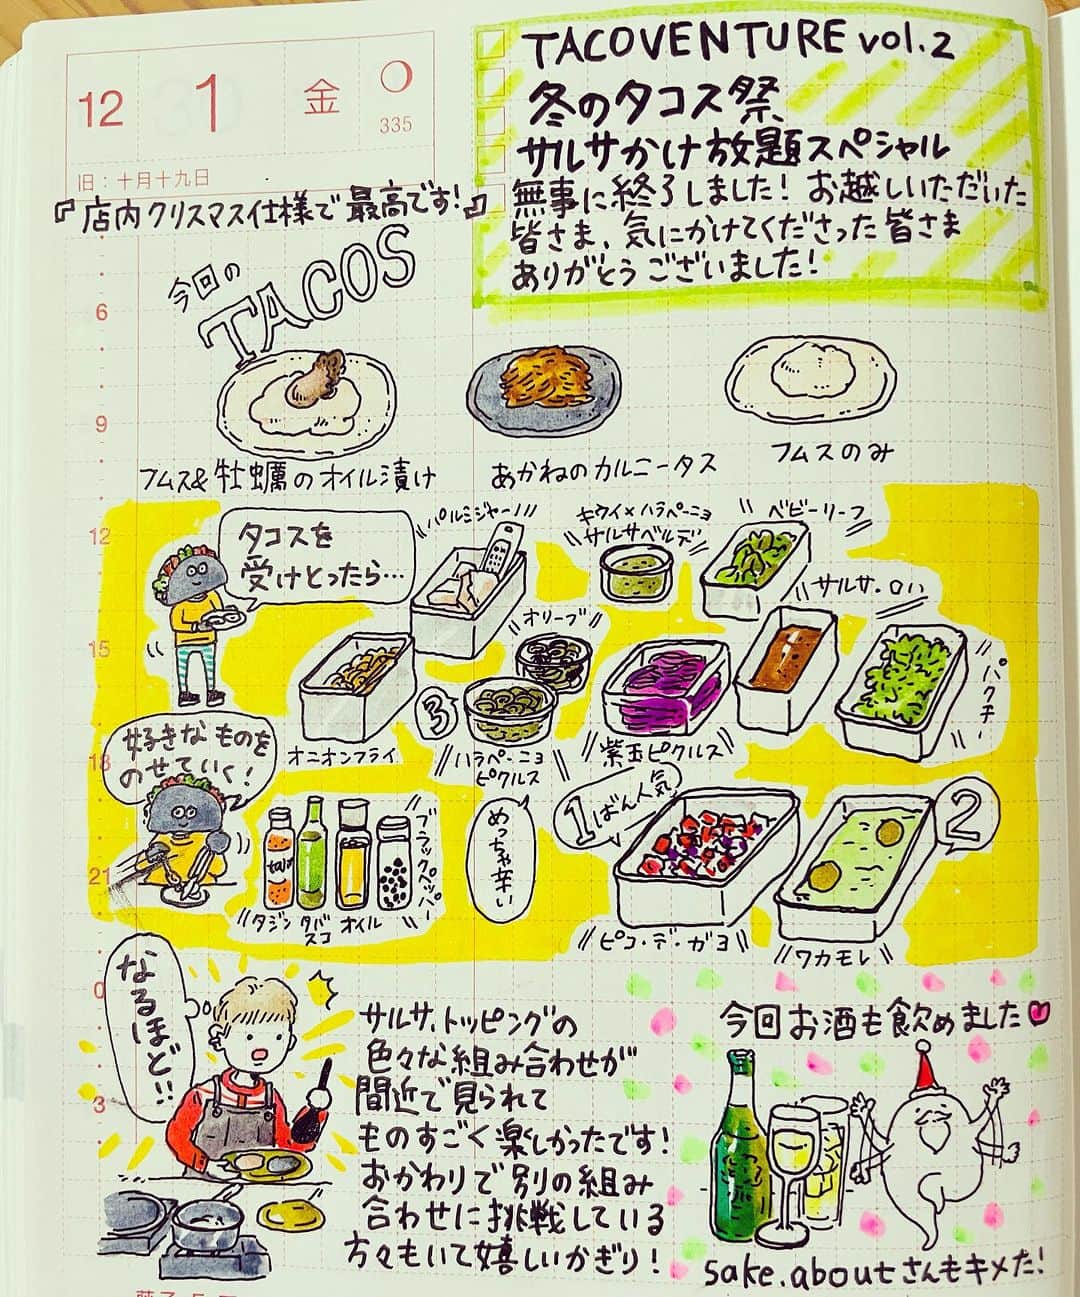 12 1 金
335
旧:十月十九日
TACOVENTURE vol.2
冬のタコス祭
サルサかけ放題スペシャル
無事に終了しました! お越しいただいた
皆さま、気にかけてくださった皆さま
ありがとうございました!
『店内クリスマス仕様で最高です!』
今回の
TACOS
6
9
12
15
18
21
0
3
フムス&牡蠣のオイル漬け
あかねのカルニータス
フムスのみ
タコスを
受けとったら…
パルミジャーノ
キウイ×ハラペーニョ
サルサベルデ
ベビーリーフ
サルサ・ロハ
オリーブ
パクチー
好きなものを
のせていく!
オニオンフライ
3
ハラペーニョ
ピクルス
紫玉ピクルス
めっちゃ辛い
1ばん人気
2
ブラックペッパー
タジン
タバスコ
オイル
ピコ・デ・ガヨ
ワカモレ
なるほど!!
サルサ、トッピングの
色々な組み合わせが
間近で見られて
ものすごく楽しかったです!
おかわりで別の組み
合わせに挑戦している
方々もいて嬉しいかぎり!
今回お酒も飲めました
sake.aboutさんもキメた!